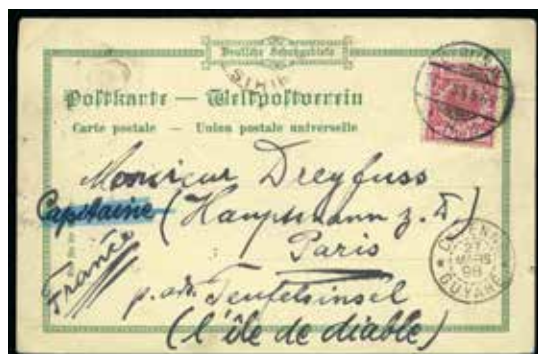 Deutsche Schutzgebiete
Postkarte — Weltpostverein
Carte postale — Union postale universelle
Monsieur Dreyfuss
Capitaine (Hauptmann z. D.)
Paris
France
p. adr. Teufelsinsel
(l'île de diable)
CAYENNE
27
MARS
98
GUYANE